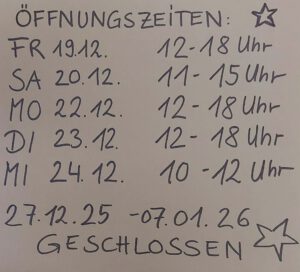 ÖFFNUNGSZEITEN:
FR 19.12. 12-18 Uhr
SA 20.12. 11-15 Uhr
MO 22.12. 12-18 Uhr
DI 23.12. 12-18 Uhr
MI 24.12. 10-12 Uhr
27.12.25 -07.01.26
GESCHLOSSEN